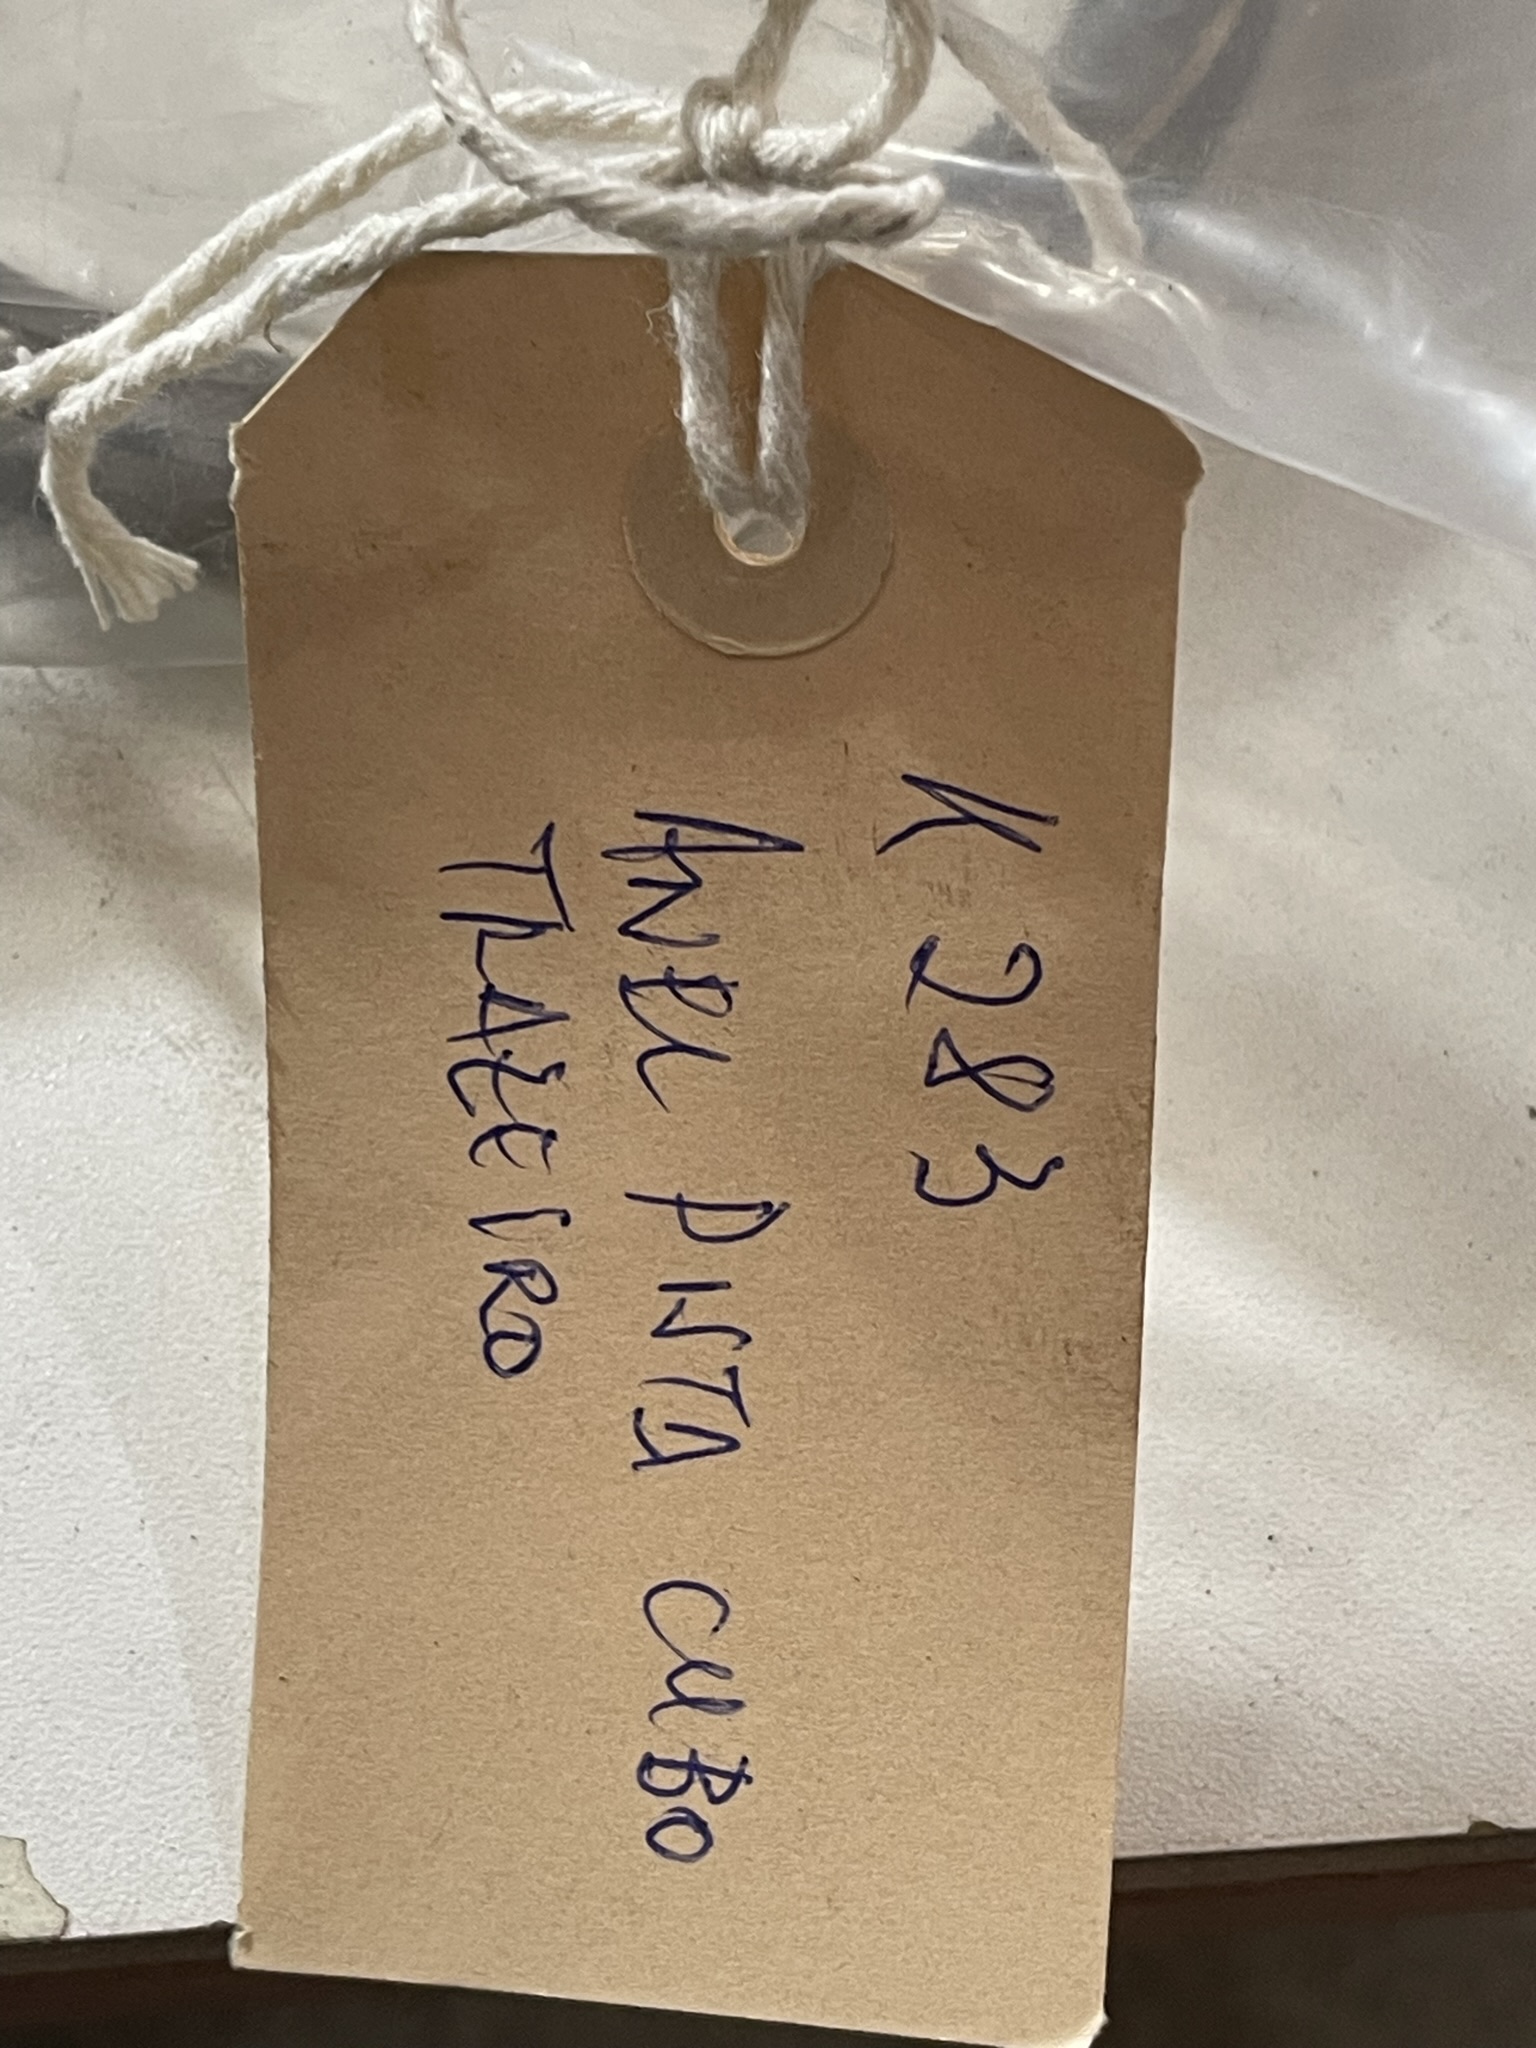 K 283
ANEL PINTA CUBO
TRAZEIRO